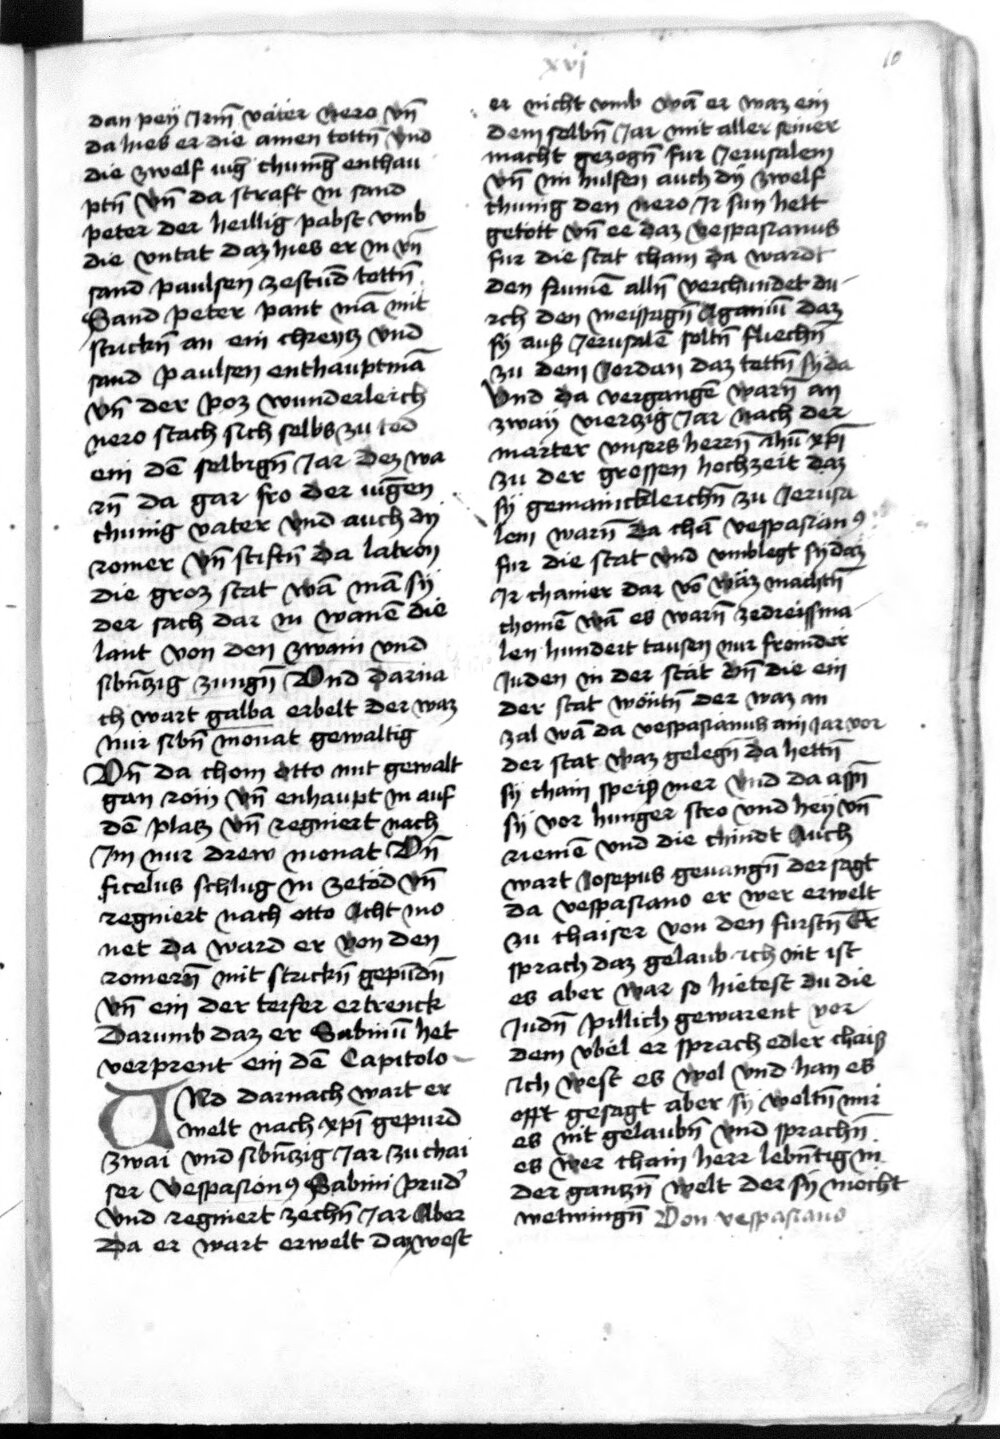 xvj
10
dan peÿ Irm̄ vater nero vn̄
da hies er die amen tottn̄ vnd
die zwelf iūg chunig enthau
ptn̄ vn̄ da straft in sand
peter der heillig pabst vmb
die vntat daz hies er in vn̄
sand paulsen zestūd tottn̄
Sand peter pant mā mit
strickn̄ an ein chreutz vnd
sand paulsen enthauptmā
vn̄ der poz wunderleich
nero stach sich selbs zu tod
ein dē selbign̄ Iar dez wa
rn̄ da gar fro der iūgen
chunig vater vnd auch dÿ
romer vn̄ stiftn̄ da latron
die groz stat wā mā sÿ
der sach dar in wonē die
laut von den zwain vnd
sibn̄zig zungn̄ Vnd darna
ch wart galba erbelt der waz
nur sibn̄ monat gewaltig
Vn̄ da chom otto mit gewalt
gan rom vn̄ enhaupt in auf
dē platz vn̄ regniert nach
Im nur drew monat Vn̄
ficelus schlug in zetod vn̄
regniert nach otto Acht mo
net da ward er von den
romern̄ mit strickn̄ gepūdn̄
vn̄ ein der teifer ertrenck
Darumb daz er Sabinū het
verprent ein dē Capitolo
Und darnach wart er
welt nach xp̄i gepurd
zwai vnd sibn̄zig Iar zu chai
ser Vespasion9 Sabini prud'
vnd regniert zechn̄ Iar Aber
Da er wart erwelt daz west
er nicht vmb wā er waz ein
dem selbn̄ Iar mit aller seiner
macht gezogn̄ fur Jerusalem
vn̄ im hulfen auch dÿ zwelf
chunig den nero Ir sun helt
getott vn̄ ee daz vespasianus
fur die stat cham da wardt
den frumē alln̄ verchundet du
rch den weissagn̄ Aganiū daz
sÿ aus Jerusalē soltn̄ fliechn̄
zu dem Jordan daz tettn̄ sÿ da
Vnd da vergangē warn̄ an
zwaÿ vierzig Iar nach der
marter vnsers herrn̄ ihū xp̄i
zu der grossen hochzeit daz
sÿ gemainicklerchn̄ zu Jerusa
lem warn̄ da chā vespasian9
fur die stat vnd vmblegt sÿ daz
Ir chainer dar vō waz machtn̄
chomē wā es warn̄ zedreissma
len hundert tausen nur fromder
Juden in der stat vn̄ die ein
der stat wontn̄ der waz an
zal wā da vespasianus ain iar vor
der stat waz gelegn̄ da hettn̄
sÿ chain speis mer vnd da assn̄
sÿ vor hunger stro vnd heÿ vn̄
riemē vnd die chindt Auch
wart Josepus geuangn̄ der sagt
da vespasiano er wer erwelt
zu chaiser von den furstn̄ Er
sprach daz gelaub ich nit ist
es aber war so hietest du die
Judn̄ pillich gewarent vor
dem vbel er sprach edler chaiß
ich west es wol vnd han es
offt gesagt aber sÿ woltn̄ mir
es nit gelaubn̄ vnd sprachn̄
es wer chain herr lebn̄tig in
der gantzn̄ welt der sÿ mocht
wetwingn̄ Von vespasiano